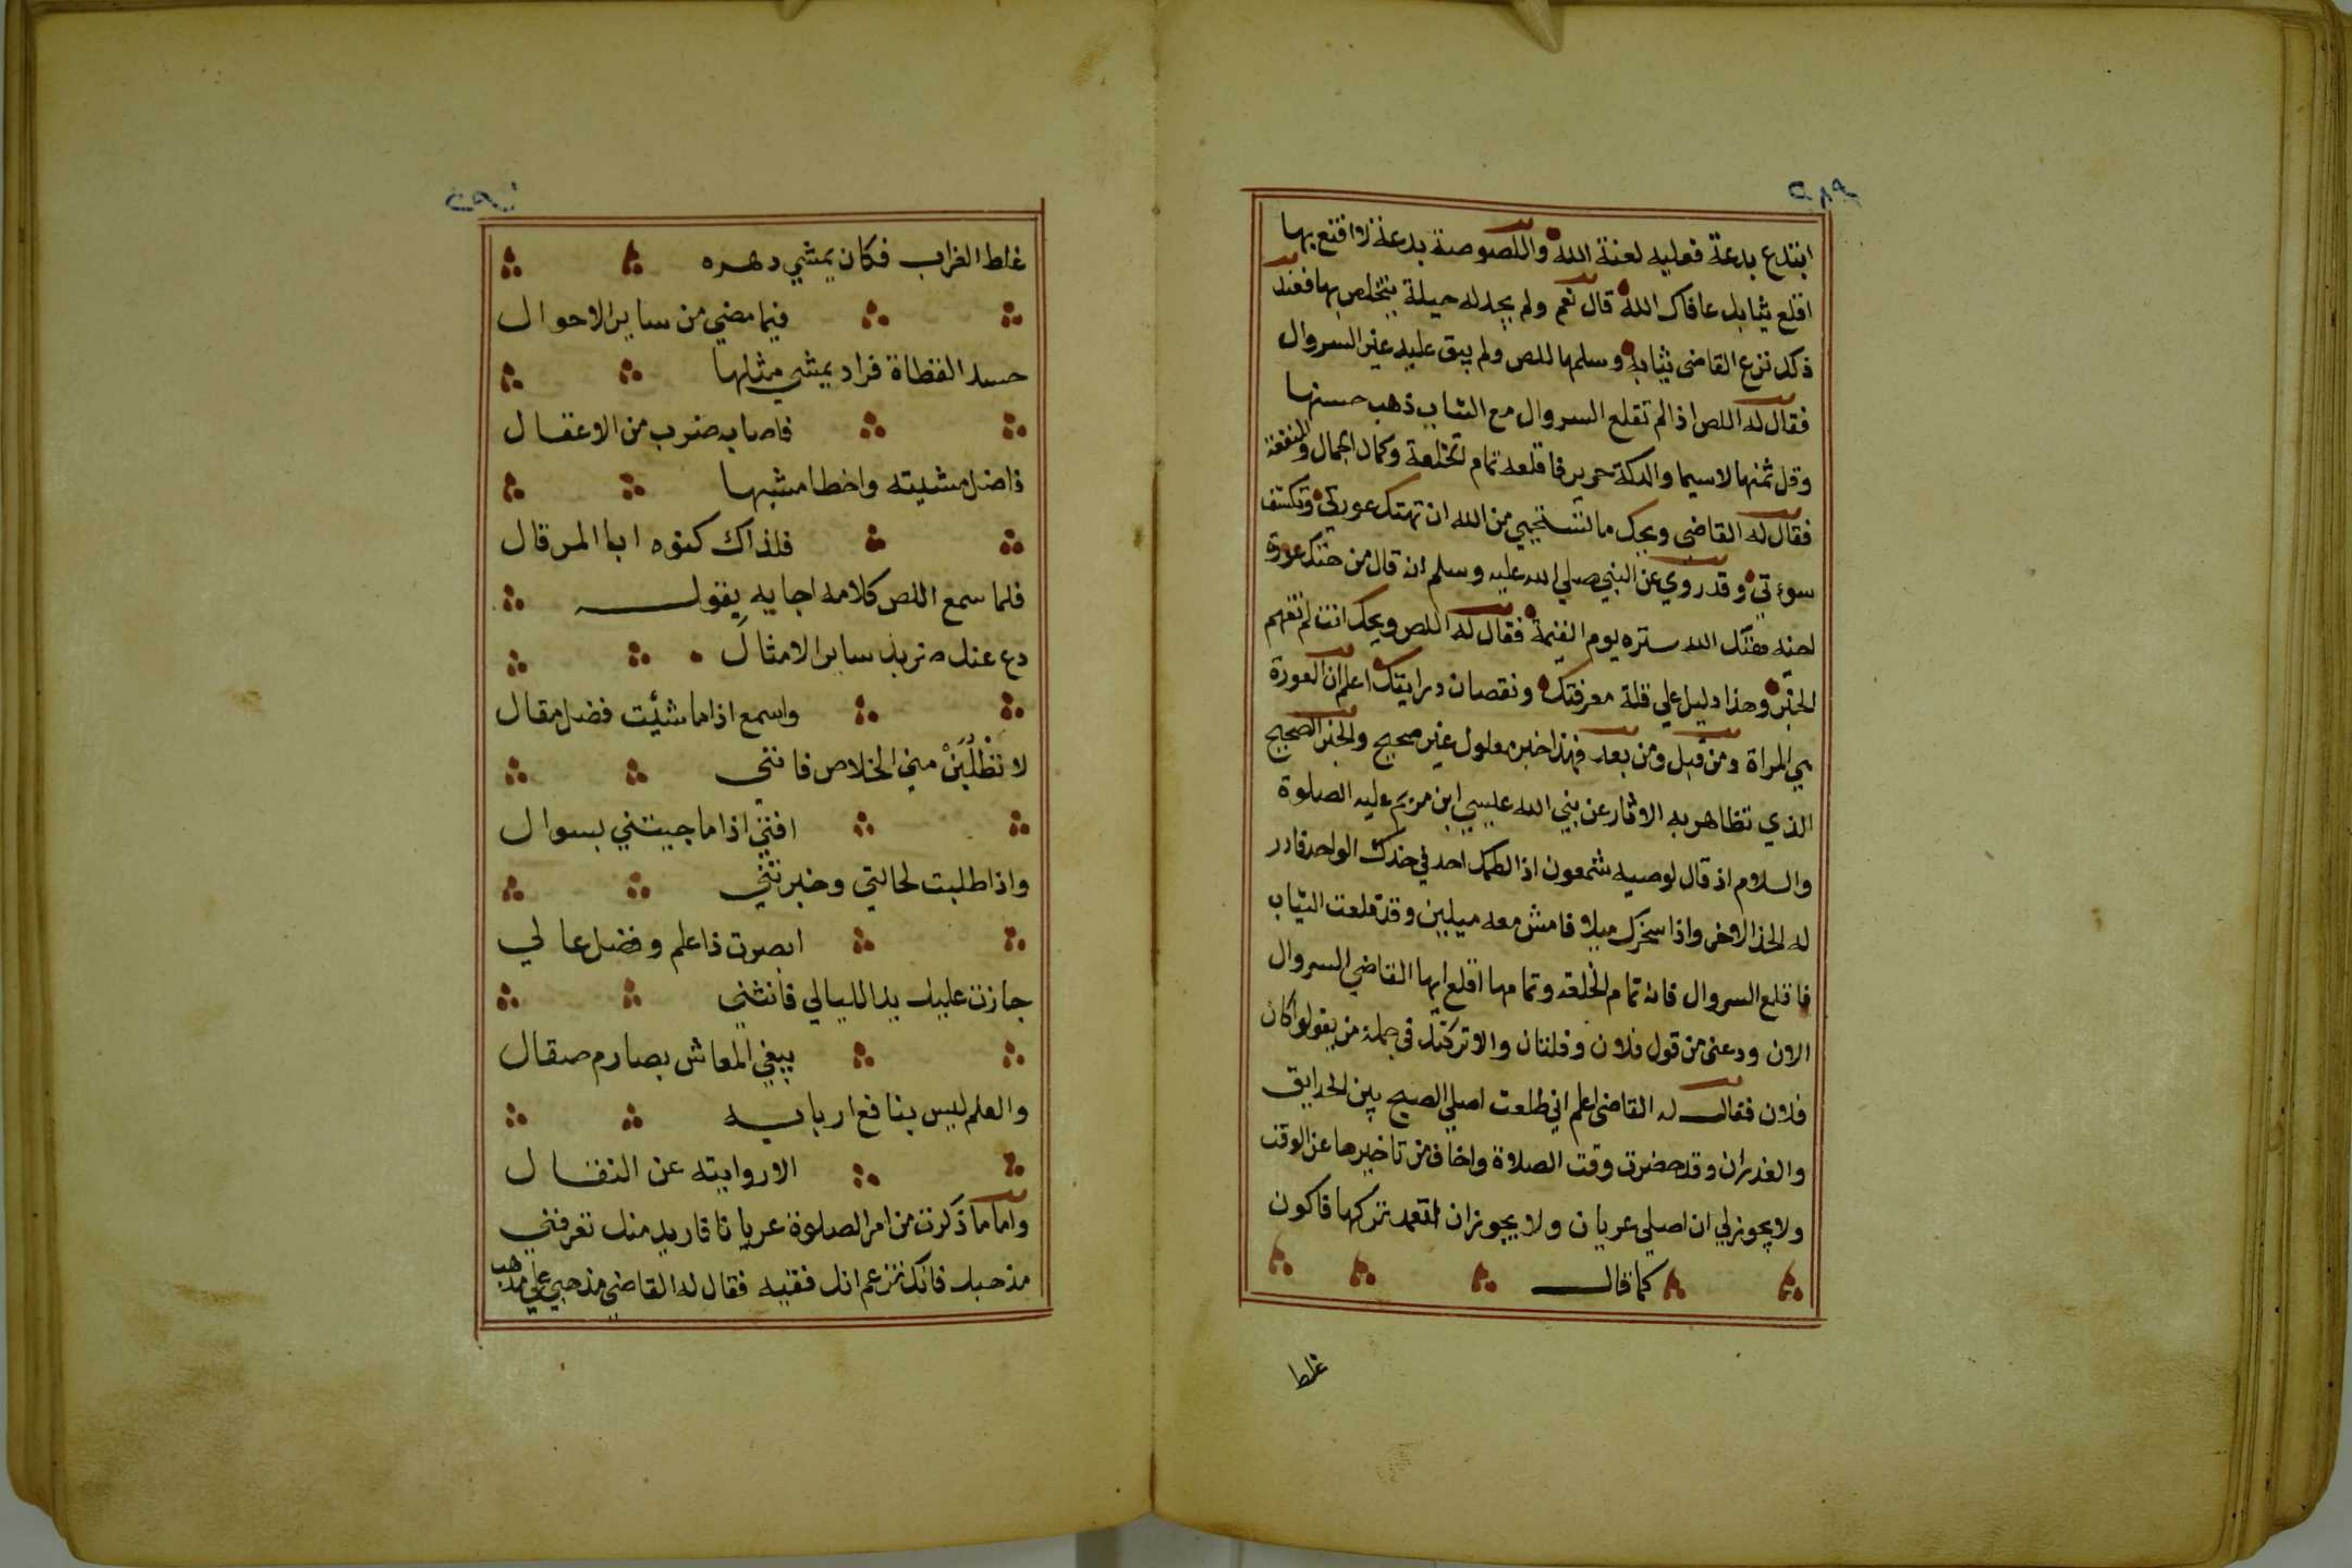 ٢٨٩
ابتدع بدعة فعليه لعنة الله واللصوصة بدعة لا اقتع بها
اقلع ثيابك عافاك الله قال نعم ولم يجد له حيلة يتخلص بها فعند
ذلك نزع القاضى ثيابه وسلمها للص ولم يبق عليه غير السروال
فقال له اللص اذا لم تقلع السروال مع الثياب ذهب حسنها
وقل ثمنها لاسيما والدكة حرير فاقلعه تمام الخلعة وكمال الجمال والمنفعة
فقال له القاضى ويحك ما تستحيي من الله ان تهتك عورتي وتكشف
سوءتي وقد روي عن النبي صلي الله عليه وسلم انه قال من هتك عورة
اخيه هتك الله ستره يوم القيمة فقال له اللص ويحك انت لم تفهم
الخبر وهذا دليل علي قلة معرفتك ونقصان درايتك اعلم ان العورة
هي المراة ومن قبل ومن بعد فهذا خبر معلول غير صحيح والخبر الصحيح
الذي تظاهر به الاثار عن نبي الله عيسي ابن مريم عليه الصلوة
والسلام اذ قال لوصيه شمعون اذا لطمك احد في خدك الواحد فادر
له الخد الاخر واذا سخرك ميلا فامش معه ميلين وقد قلعت الثياب
فاقلع السروال فانه تمام الخلعة وتمامها اقلع ايها القاضي السروال
الان ودعنى من قول فلان وفلتان والا تركتك في جملة من يقولوا كان
فلان فقال له القاضى اعلم اني طلعت اصلي الصبح بين الحدايق
والغدران وقد حضرت وقت الصلاة واخاف من تاخيرها عن الوقت
ولا يجوز لي ان اصلي عريان ولا يجوز ان اتعمد تركها فاكون
كما قال
غلط
٢٩٠
غلط الغراب فكان يمشي دهره
فيما مضي من ساير الاحوال
حسد القطاة فراد يمشي مثلها
فاصابه ضرب من الاعقال
فاضل مشيته واخطا مشيها
فلذاك كنوه ابا المرقال
فلما سمع اللص كلامه اجابه يقول
دع عنك ضربك ساير الامثال
واسمع اذا ما شئت فضل مقال
لا تطلبن مني الخلاص فانني
افتي اذا ما جيتني بسوال
واذا طلبت لحالتي وخبرتني
ابصرت ذا علم وفضل عالي
جازت عليك يد الليالي فانثني
يبغي المعاش بصارم صقال
والعلم ليس بنافع اربابه
الا روايته عن النقال
واما ما ذكرت من امر الصلوة عريانا فاريد منك تعرفني
مذهبك فانك تزعم انك فقيه فقال له القاضي مذهبي علي مذهب